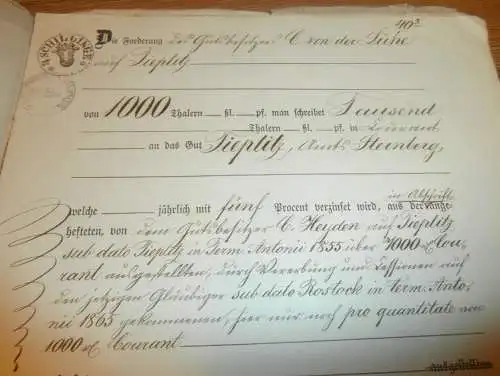 40ª
4 SCHIL. CLASSE
Die Forderung des Gutsbesitzers C von der Lühe
auf Tieplitz
von 1000 Thalern ßl. pf. man schreibet Tausend
Thalern ßl. pf. in Courant
an das Gut Tieplitz, Amts Sternberg,
in Abschrift
welche jährlich mit fünf Procent verzinset wird, aus der ange-
hefteten, von dem Gutsbesitzer C. Heyden auf Tieplitz
sub dato Tieplitz in Term Antonii 1855 über 7000 rt Cou-
rant ausgestellten, durch Vererbung und Cessionen auf
den jetzigen Gläubiger sub dato Rostock in term. Anto-
nii 1865 gekommenen, hier nur noch pro quantitate von
1000 rt Courant
ausgestellten